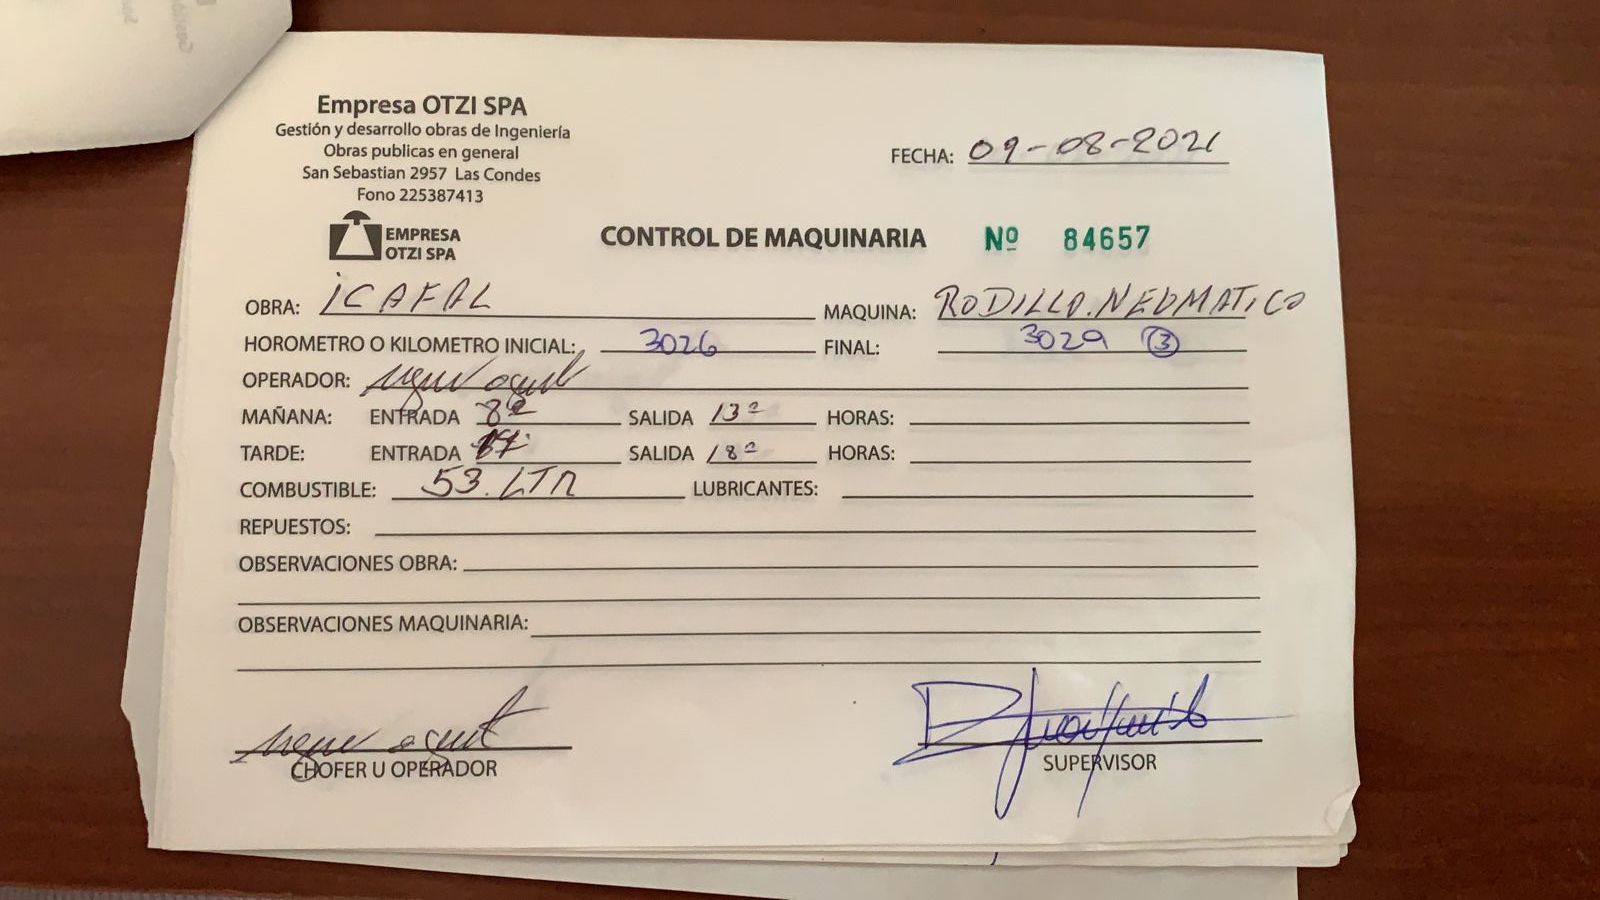 Empresa OTZI SPA
Gestión y desarrollo obras de Ingeniería
Obras publicas en general
San Sebastian 2957 Las Condes
Fono 225387413
FECHA: 09-08-2021
EMPRESA
OTZI SPA
CONTROL DE MAQUINARIA Nº 84657
OBRA: ICAFAL MAQUINA: RODILLO.NEUMATICO
HOROMETRO O KILOMETRO INICIAL: 3026 FINAL: 3029 3
OPERADOR:
MAÑANA: ENTRADA 8º SALIDA 13º HORAS:
TARDE: ENTRADA SALIDA 18º HORAS:
COMBUSTIBLE: 53.LTR LUBRICANTES:
REPUESTOS:
OBSERVACIONES OBRA:
OBSERVACIONES MAQUINARIA:
CHOFER U OPERADOR
SUPERVISOR